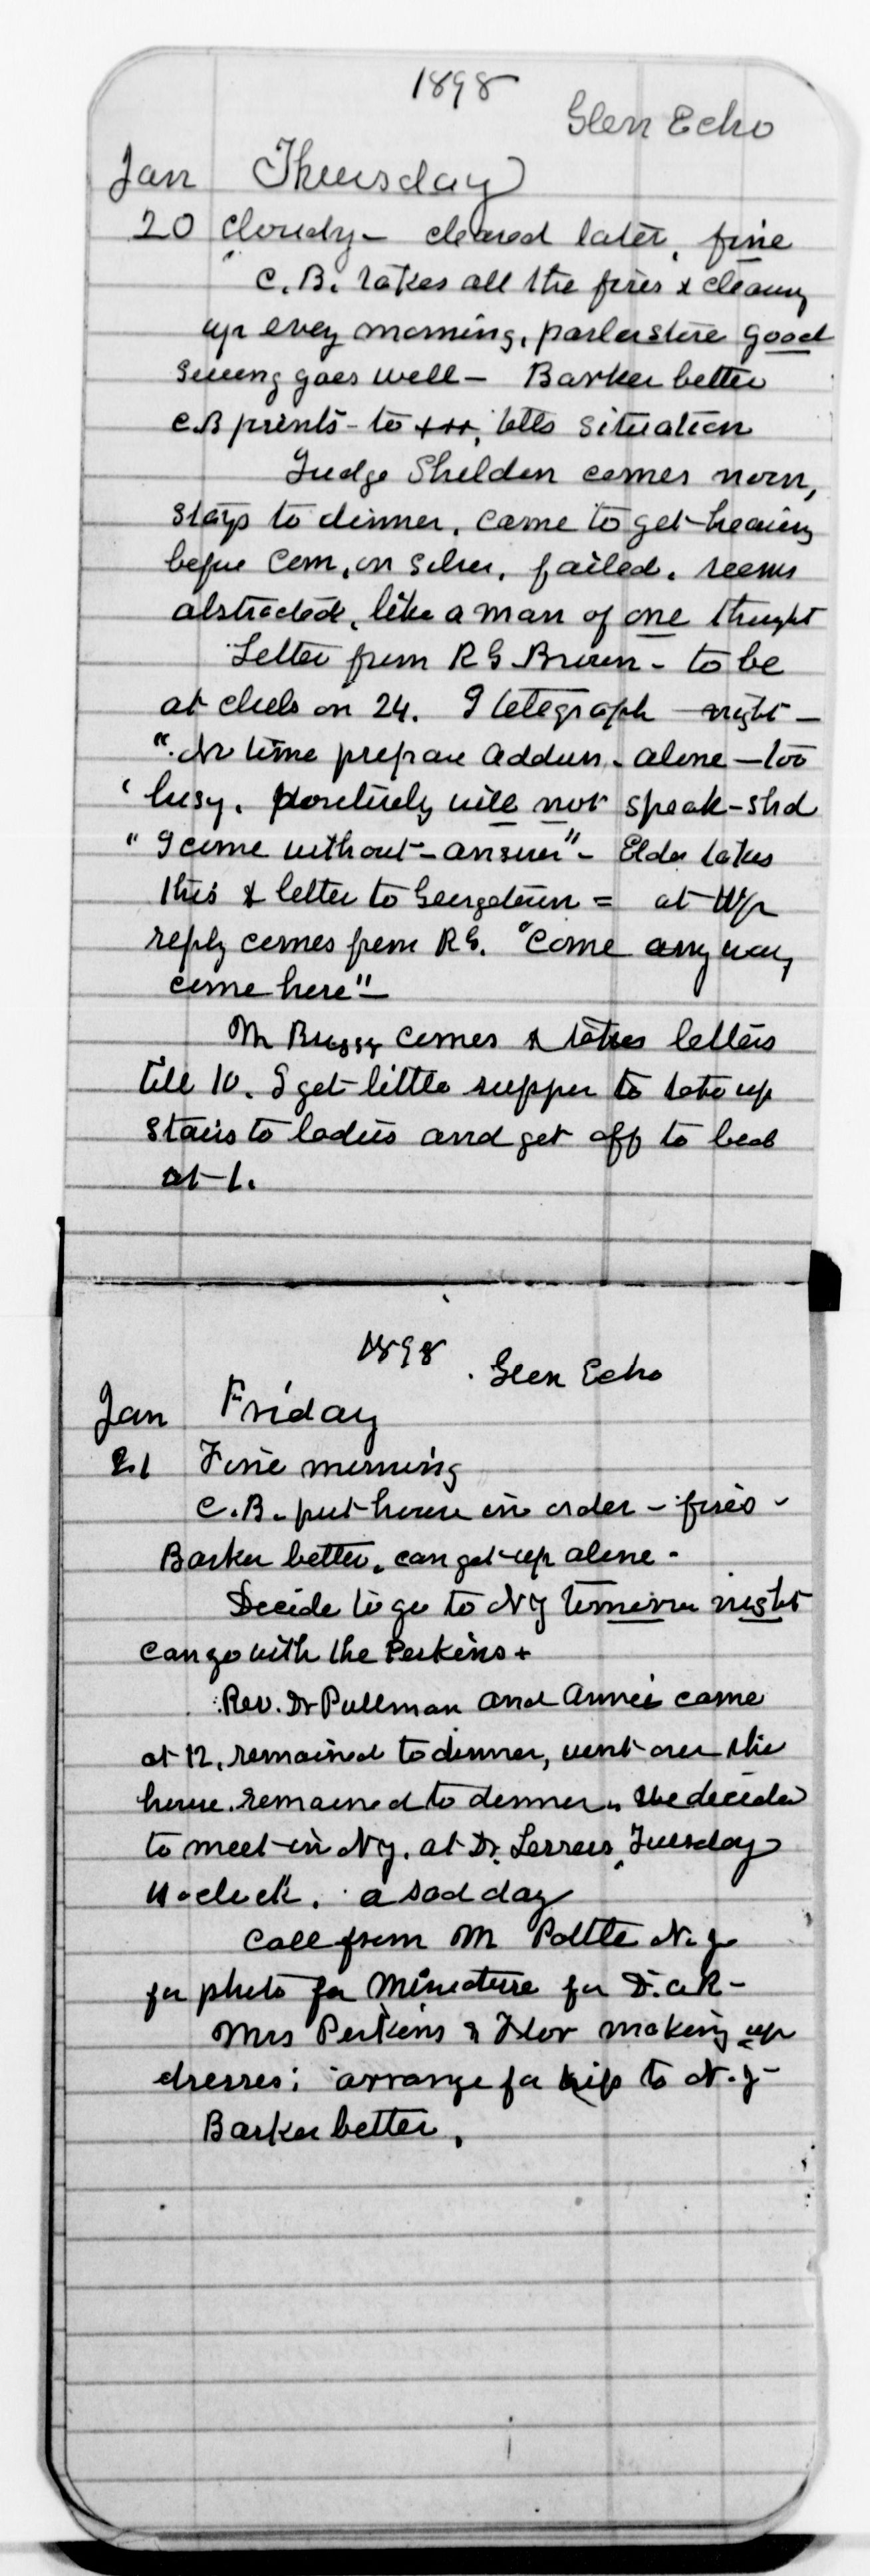 1898
Glen Echo
Jan Thursday
20 Cloudy - cleared later, fine
C.B. takes all the fires & cleaning
up every morning, parlor stove good
Sewing goes well - Barker better
C.B prints - to +++, tells situation
Judge Sheldon comes noon,
stays to dinner, came to get hearing
before Com, on silver, failed. seems
abstracted, like a man of one thought
Letter from R G Brown - to be
at club on 24. I telegraph night -
"No time prepare address - alone - too
"busy. Positively will not speak - shd
"I come without - answer" - Elder takes
this & letter to Georgetown = at
reply comes from R G. "Come any way
come here" -
Mr Briggs comes & takes letters
till 10. I get little supper to take up
stairs to ladies and get off to bed
at 1.
1898
Glen Echo
Jan Friday
21 Fine morning
C.B. put house in order - fires -
Barker better, can get up alone -
Decide to go to NY tomorrow night
can go with the Perkins +
Rev. Dr Pullman and Annie came
at 12, remained to dinner, went over the
house. remained to dinner. We decide
to meet in NY. at Dr. Tuesday
11 oclock. a sad day
Call from M Pottle N.Y
for photo for Miniature for D.A.R -
Mrs Perkins & Flor making up
dresses; arrange for trip to N.Y -
Barker better.